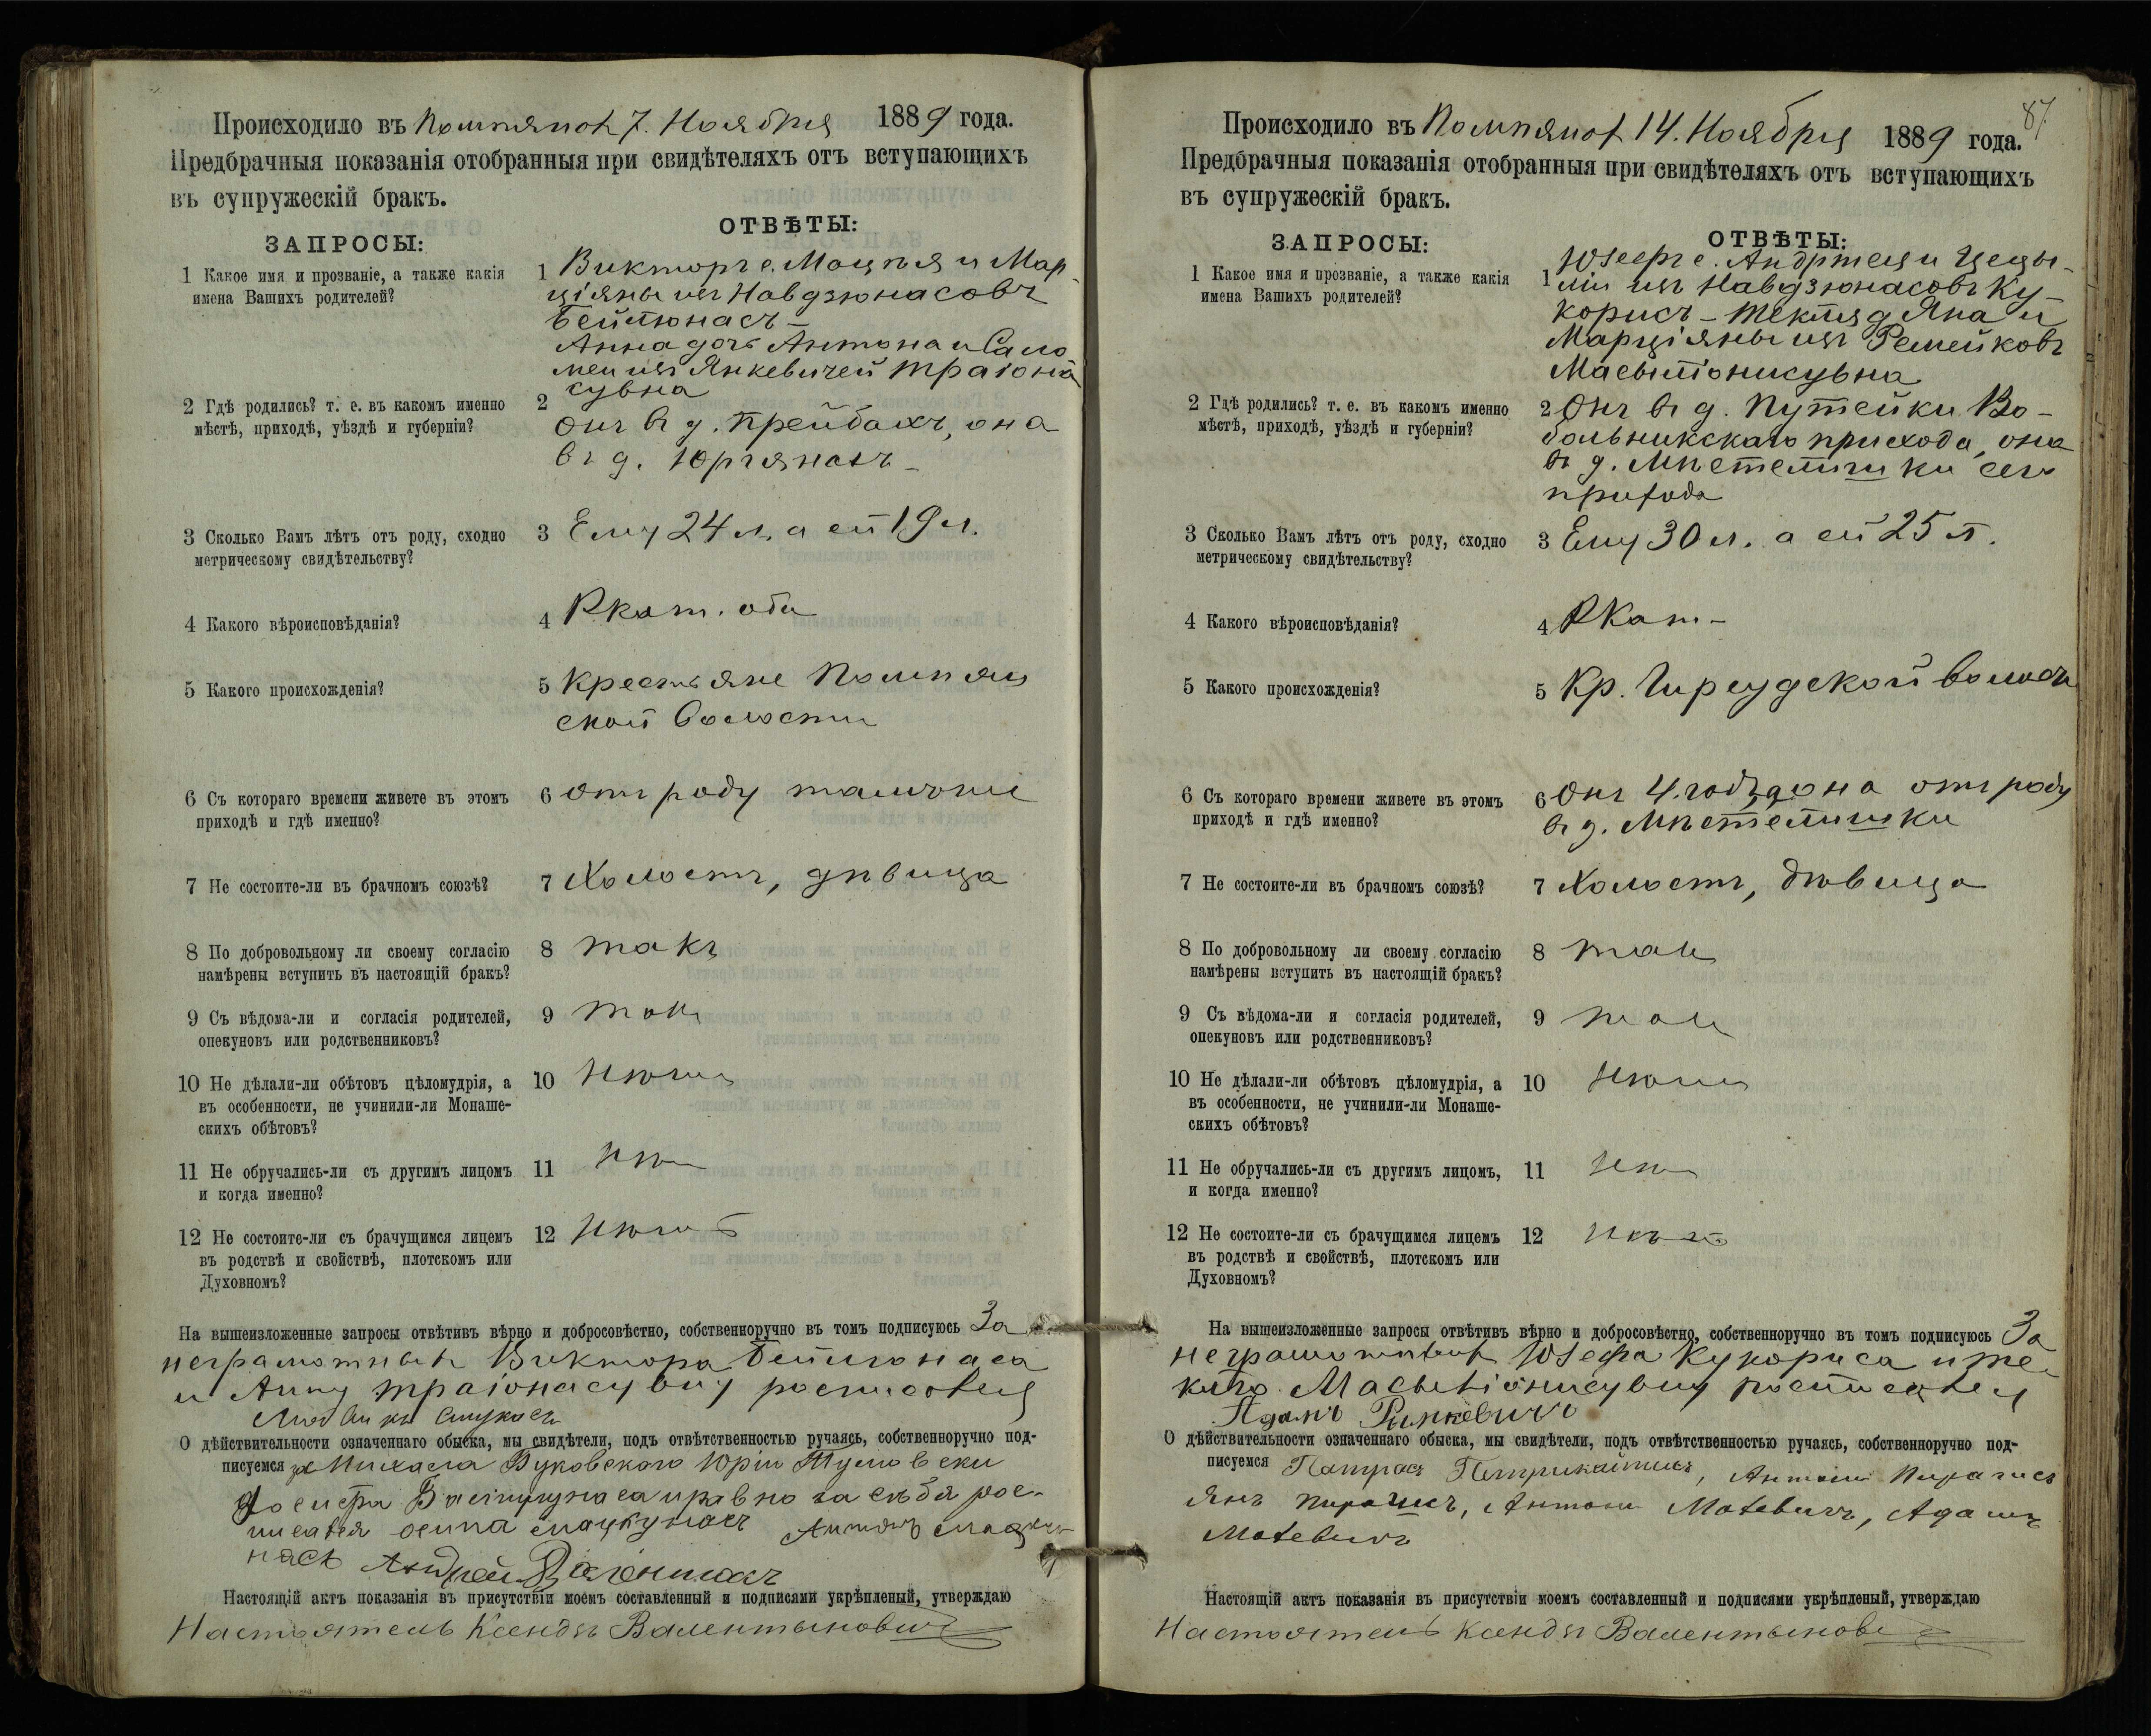 Происходило въ Помпянох 7. Ноября 1889 года.
Предбрачныя показанія отобранныя при свидѣтеляхъ отъ вступающихъ
въ супружескій бракъ.
ЗАПРОСЫ:
ОТВѢТЫ:
1 Какое имя и прозваніе, а также какія
имена Вашихъ родителей?
1 Викторъ с. Мацѣя и Мар-
ціяны изъ Навдзюнасовъ
Бейнонасъ –
Анна дочь Антона и Сало
меи изъ Янкевичей Траіона
сувна
2 Гдѣ родились? т. е. въ какомъ именно
мѣстѣ, приходѣ, уѣздѣ и губерніи?
2 Онъ въ д. Прейбахъ, она
въ д. Юргянахъ –
3 Сколько Вамъ лѣтъ отъ роду, сходно
метрическому свидѣтельству?
3 Ему 24 л, а ей 19 л.
4 Какого вѣроисповѣданія?
4 Ркат. оба
5 Какого происхожденія?
5 крестьяне Помпян
ской волости
6 Съ котораго времени живете въ этомъ
приходѣ и гдѣ именно?
6 отъ роду тамъ
7 Не состоите-ли въ брачномъ союзѣ?
7 Холостъ, дѣвица
8 По добровольному ли своему согласію
намѣрены вступить въ настоящій бракъ?
8 такъ
9 Съ вѣдома-ли и согласія родителей,
опекуновъ или родственниковъ?
9 такъ
10 Не дѣлали-ли обѣтовъ цѣломудрія, а
въ особенности, не учинили-ли Монаше-
скихъ обѣтовъ?
10 нѣтъ
11 Не обручались-ли съ другимъ лицомъ
и когда именно?
11 нѣтъ
12 Не состоите-ли съ брачущимся лицемъ
въ родствѣ и свойствѣ, плотскомъ или
Духовномъ?
12 нѣтъ
На вышеизложенные запросы отвѣтивъ вѣрно и добросовѣстно, собственноручно въ томъ подписуюсь За
неграмотных Виктора Бейнонаса
и Анну Траіонасувну росписался
О дѣйствительности означеннаго обыска, мы свидѣтели, подъ отвѣтственностью ручаясь, собственноручно под-
писуемся за Михала Буковского Юрій
и равно за себя рос-
писался
Настоящій актъ показанія въ присутствіи моемъ составленный и подписями укрѣпленый, утверждаю
Настоятель Ксендзъ Валентынович
87.
Происходило въ Помпянох 14. Ноября 1889 года.
Предбрачныя показанія отобранныя при свидѣтеляхъ отъ вступающихъ
въ супружескій бракъ.
ЗАПРОСЫ:
ОТВѢТЫ:
1 Какое имя и прозваніе, а также какія
имена Вашихъ родителей?
Юзефъ с. Андржея и Цецы-
1 ліи изъ Навдзюнасовъ Ку-
корисъ – Текля д Яна и
Марціяны изъ Ремейковъ
Масытіонисувна
2 Гдѣ родились? т. е. въ какомъ именно
мѣстѣ, приходѣ, уѣздѣ и губерніи?
2 Онъ въ д. Путейки Во-
больникскаго прихода, она
въ д. Мѣстелишки сего
прихода
3 Сколько Вамъ лѣтъ отъ роду, сходно
метрическому свидѣтельству?
3 Ему 30 л. а ей 25 л.
4 Какого вѣроисповѣданія?
4 РКат –
5 Какого происхожденія?
5 Кр. волости
6 Съ котораго времени живете въ этомъ
приходѣ и гдѣ именно?
6 Онъ 4. года, она отъ роду
въ д. Мѣстелишки
7 Не состоите-ли въ брачномъ союзѣ?
7 Холостъ, дѣвица
8 По добровольному ли своему согласію
намѣрены вступить въ настоящій бракъ?
8 такъ
9 Съ вѣдома-ли и согласія родителей,
опекуновъ или родственниковъ?
9 такъ
10 Не дѣлали-ли обѣтовъ цѣломудрія, а
въ особенности, не учинили-ли Монаше-
скихъ обѣтовъ?
10 нѣтъ
11 Не обручались-ли съ другимъ лицомъ,
и когда именно?
11 нѣтъ
12 Не состоите-ли съ брачущимся лицемъ
въ родствѣ и свойствѣ, плотскомъ или
Духовномъ?
12 нѣтъ
На вышеизложенные запросы отвѣтивъ вѣрно и добросовѣстно, собственноручно въ томъ подписуюсь За
неграмотных Юзефа Кукориса и Те-
клю Масытіонисувну росписался
Адамъ Римкевичъ
О дѣйствительности означеннаго обыска, мы свидѣтели, подъ отвѣтственностью ручаясь, собственноручно под-
писуемся Петрикайтисъ, Антони Пирагисъ
Янъ Пирагисъ, Антони Матевичъ, Адамъ
Матевичъ
Настоящій актъ показанія въ присутствіи моемъ составленный и подписями укрѣпленый, утверждаю
Настоятель Ксендзъ Валентынович